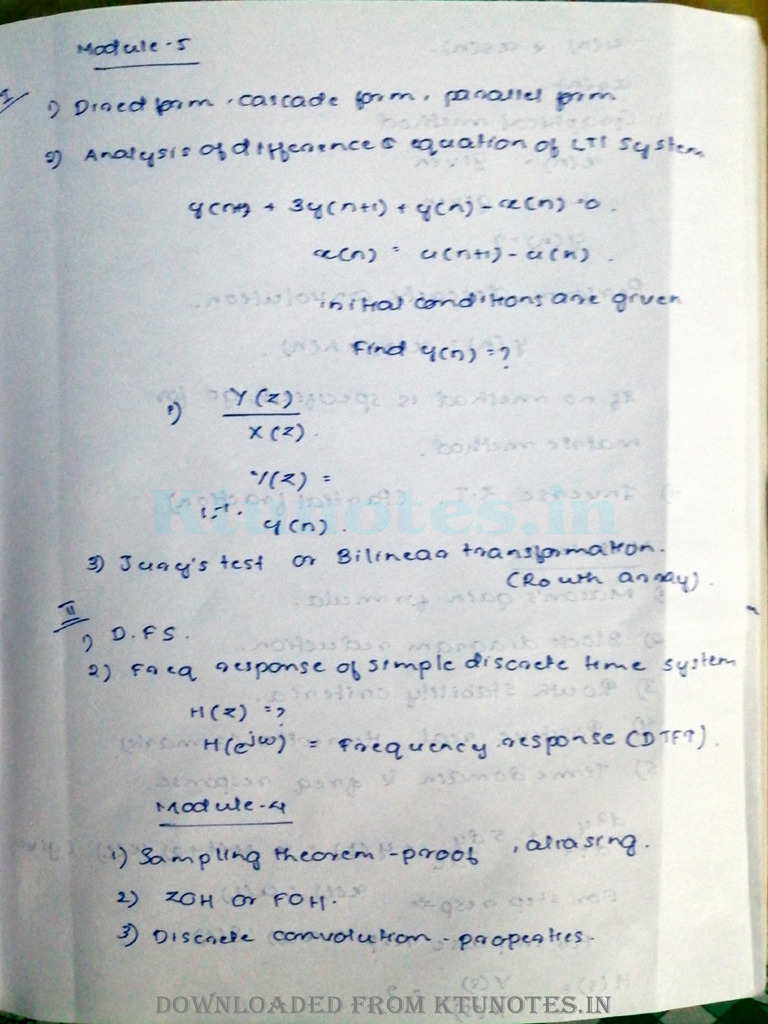 Module-5
I
1) Direct form, cascade form, parallel form
2) Analysis of difference equation of LTI system
+ 3y(n+1) + y(n) - x(n) = 0.
x(n) = u(n+1) - u(n).
initial conditions are given
Find y(n) = ?
1) Y(z)
X(z).
Y(z) =
y(n).
Ktunotes.in
3) Jury's test or Bilinear transformation.
(Routh array).
II
1) D.FS.
2) Freq response of simple discrete time system
H(z) = ?
H(e^jω) = Frequency response (DTFT).
Module-4
1) Sampling theorem - proof, aliasing.
2) ZOH or FOH.
3) Discrete convolution - properties.
DOWNLOADED FROM KTUNOTES.IN